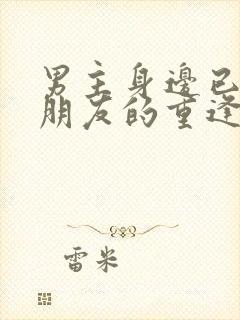 男主身邊已
朋友的重逢
雷米